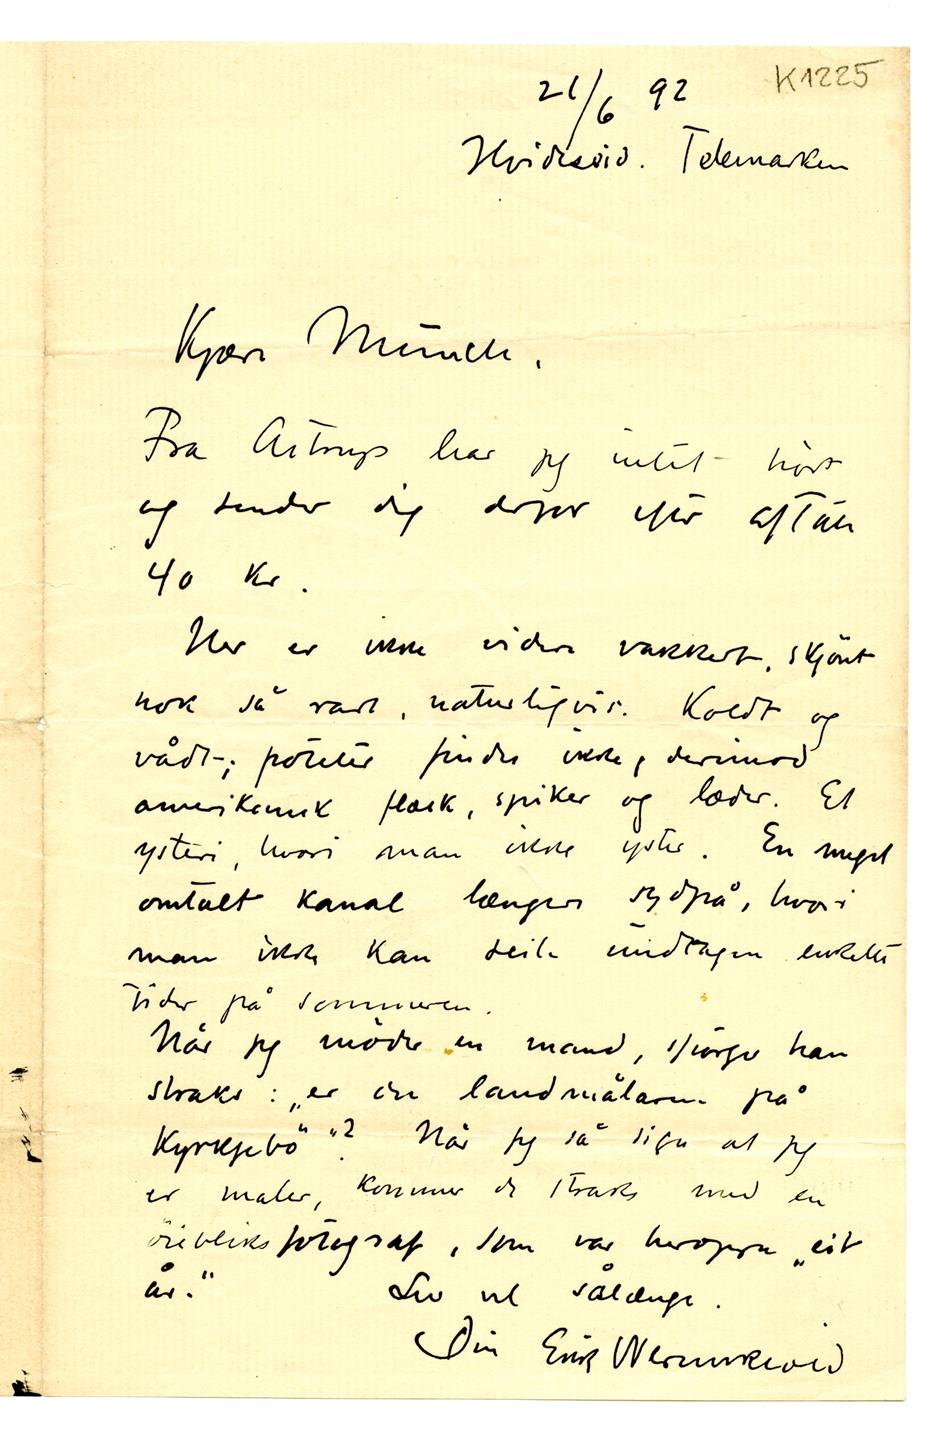 K1225
21/6 92
Hvideseid. Telemarken
Kjære Munch.
Fra Astrup har jeg intet hørt
og sender dig derfor efter aftale
40 Kr.
Her er ikke videre vakkert, skjönt
nok så rart, naturligvis. Koldt og
vådt; poteter findes ikke, derimod
amerikansk flæsk, spiker og læder. Et
ysteri, hvori man ikke yster. En meget
omtalt kanal længere sydpå, hvori
man ikke kan seile undtagen enkelte
tider på sommeren.
Når jeg möder en mand, spörger han
straks: „er du landmålaren på
Kyrkjebö"? Når jeg så siger at jeg
er maler, kommer de straks med en
öiebliksfotograf, som var heroppe „eit
år."  Lev vel sålænge.
Din Erik Werenskiold